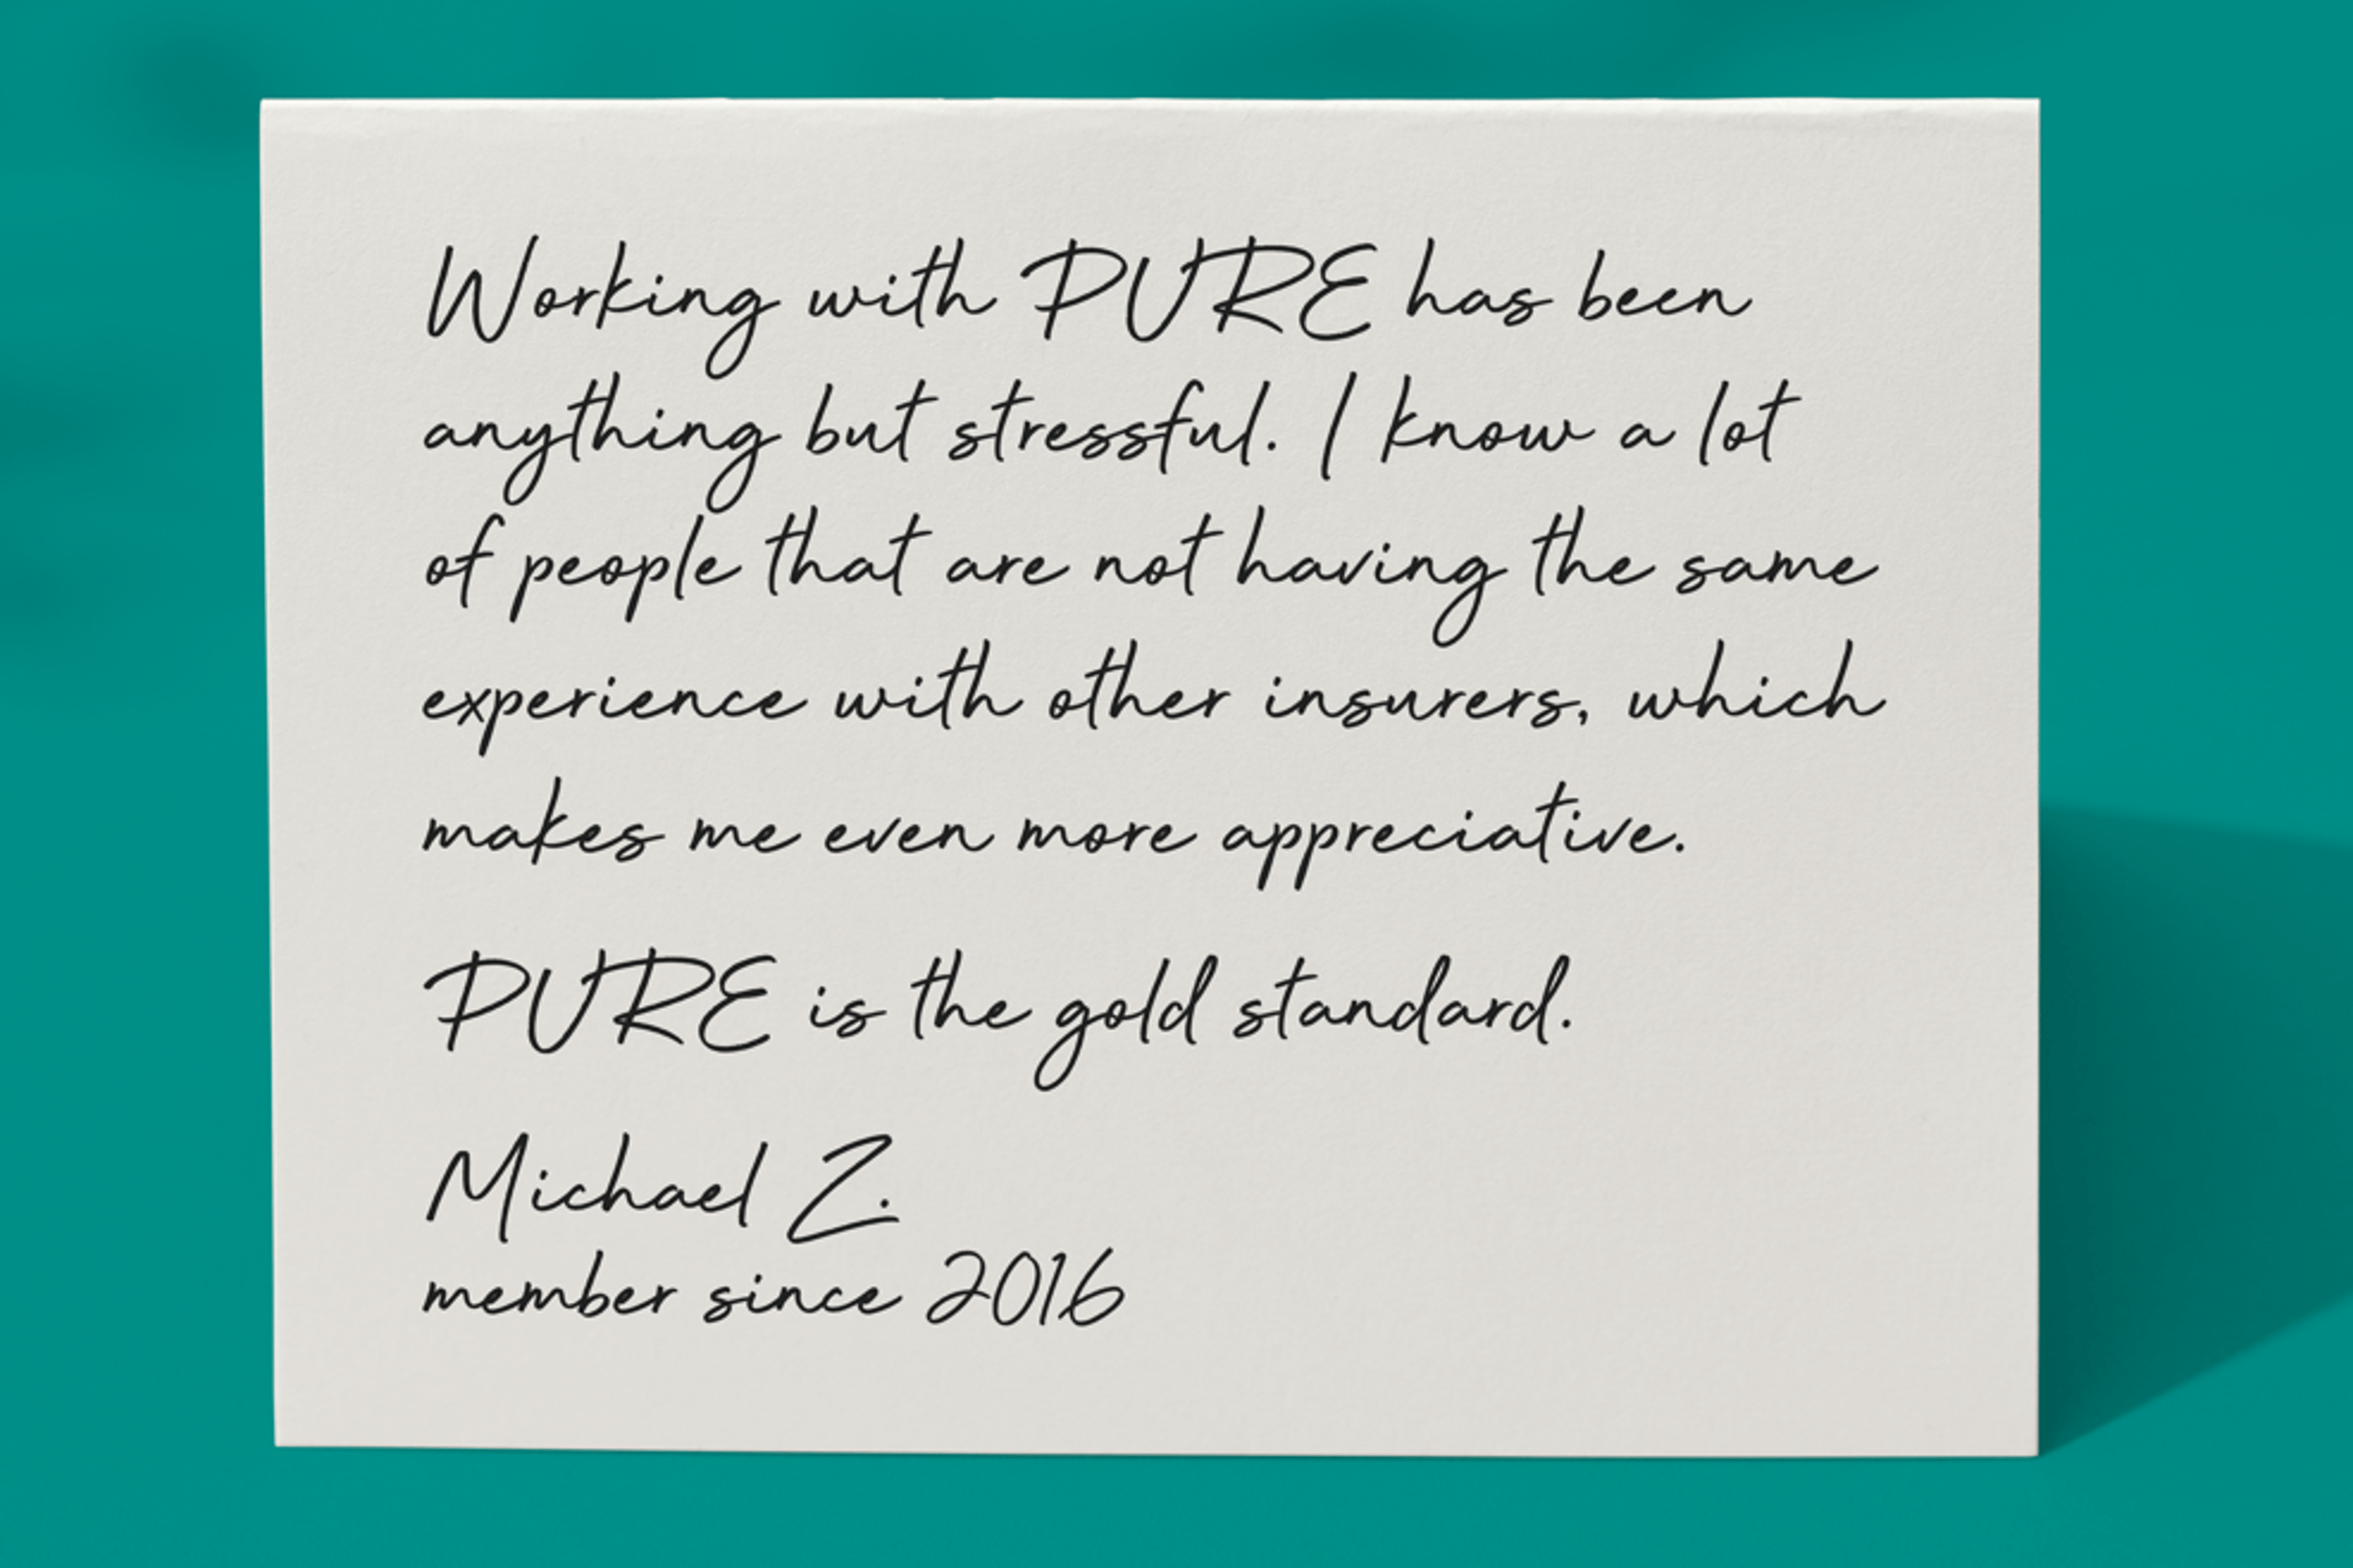 Working with PURE has been
anything but stressful. I know a lot
of people that are not having the same
experience with other insurers, which
makes me even more appreciative.
PURE is the gold standard.
Michael Z.
member since 2016